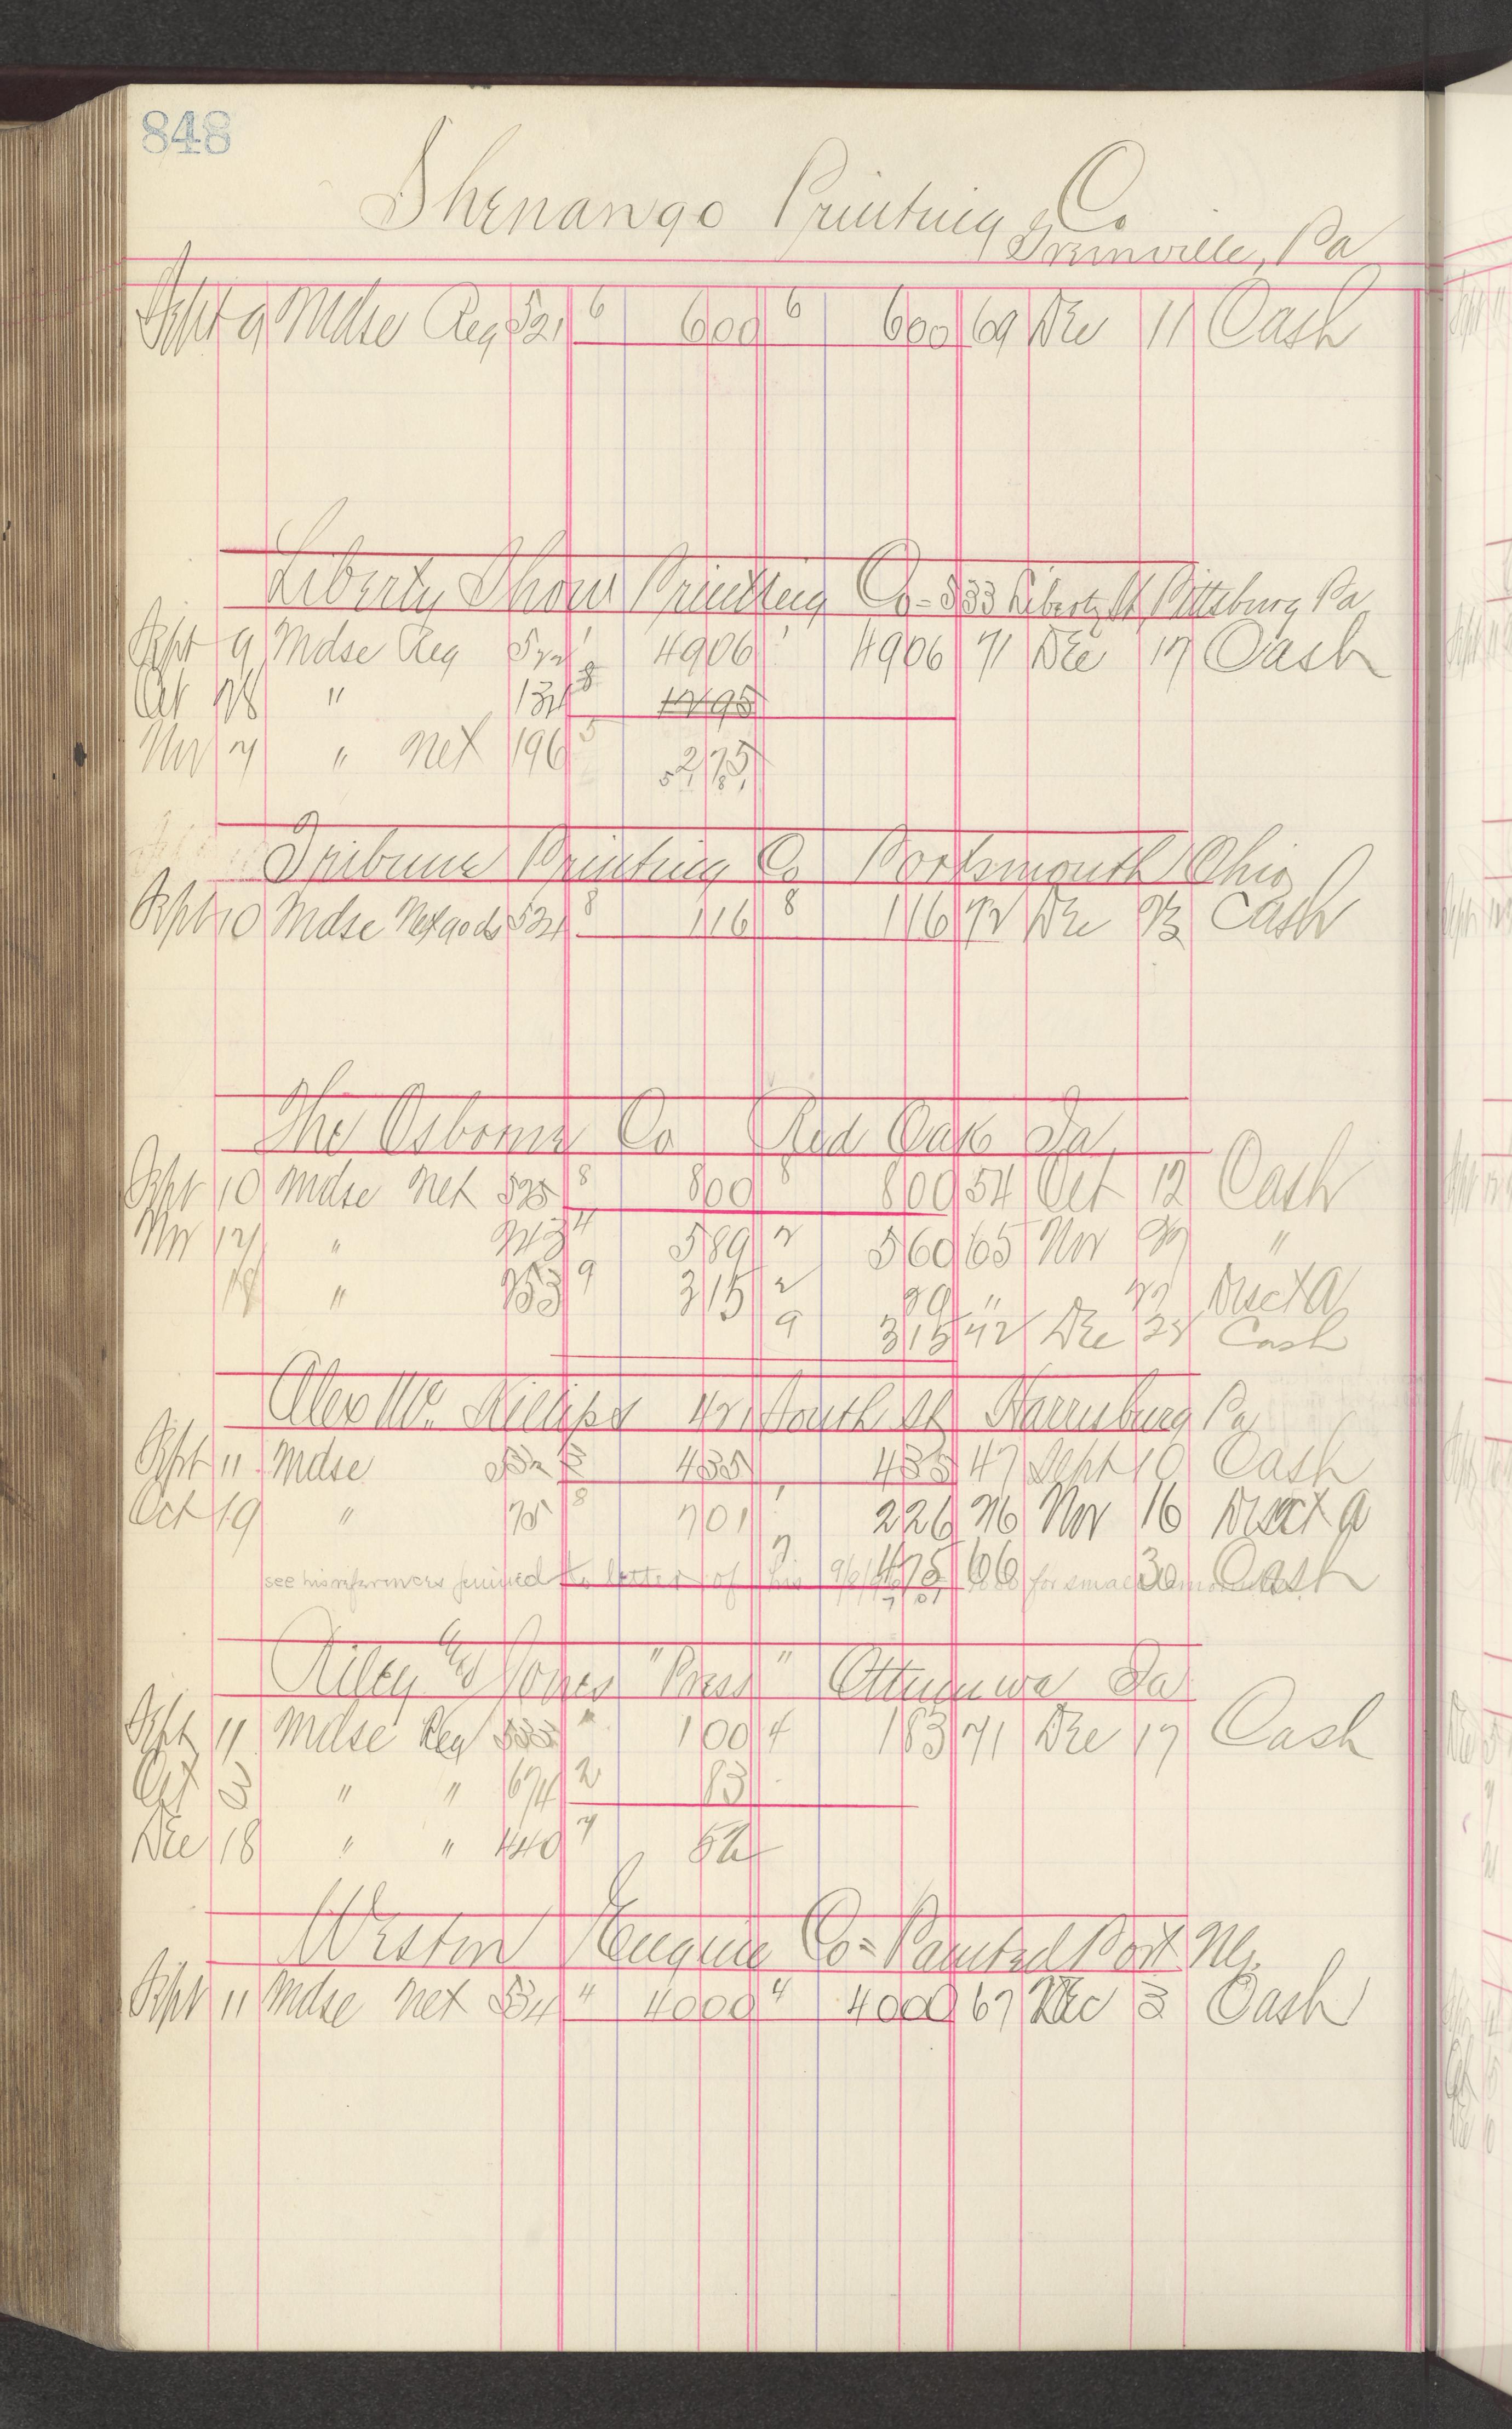 848
Shenango Printing Co
Greenville, Pa
Sept 9 Mdse Reg 521 6 600 6 600 69 Dec 11 Cash
Liberty Show Printing Co - 533 Liberty St Pittsburg Pa
Sept 9 Mdse Reg 522 1 4906 1 4906 71 Dec 17 Cash
Oct 28 " 131 8
Nov 7 " Net 196 5 275
Tribune Printing Co Portsmouth Ohio
Sept 10 Mdse Net goods 524 8 116 8 116 72 Dec 23 Cash
The Osborne Co Red Oak Ia
Sept 10 Mdse Net 525 8 800 8 800 54 Oct 12 Cash
Nov 12 " 243 4 589 2 560 65 Nov 27 "
18 " 253 9 315 2 29 " 27 Disct a
9 315 72 Dec 28 Cash
Alex Mc. Killips 421 South St Harrisburg Pa
Sept 11 Mdse 435 435 47 Sept 10 Cash
Oct 19 " 75 8 701 1 226 76 Nov 16 Disct a
7 475 66 30 Cash
see his references pinned to letter of his for small amounts
Riley & Jones "Press" Ottumwa Ia
Sept 11 Mdse Reg 533 " 100 4 183 71 Dec 17 Cash
Oct 3 " " 674 2 83
Dec 18 " " 440 7 52
Weston Engine Co = Painted Post N.Y.
Sept 11 Mdse Net 534 4 4000 4 4000 67 Dec 3 Cash